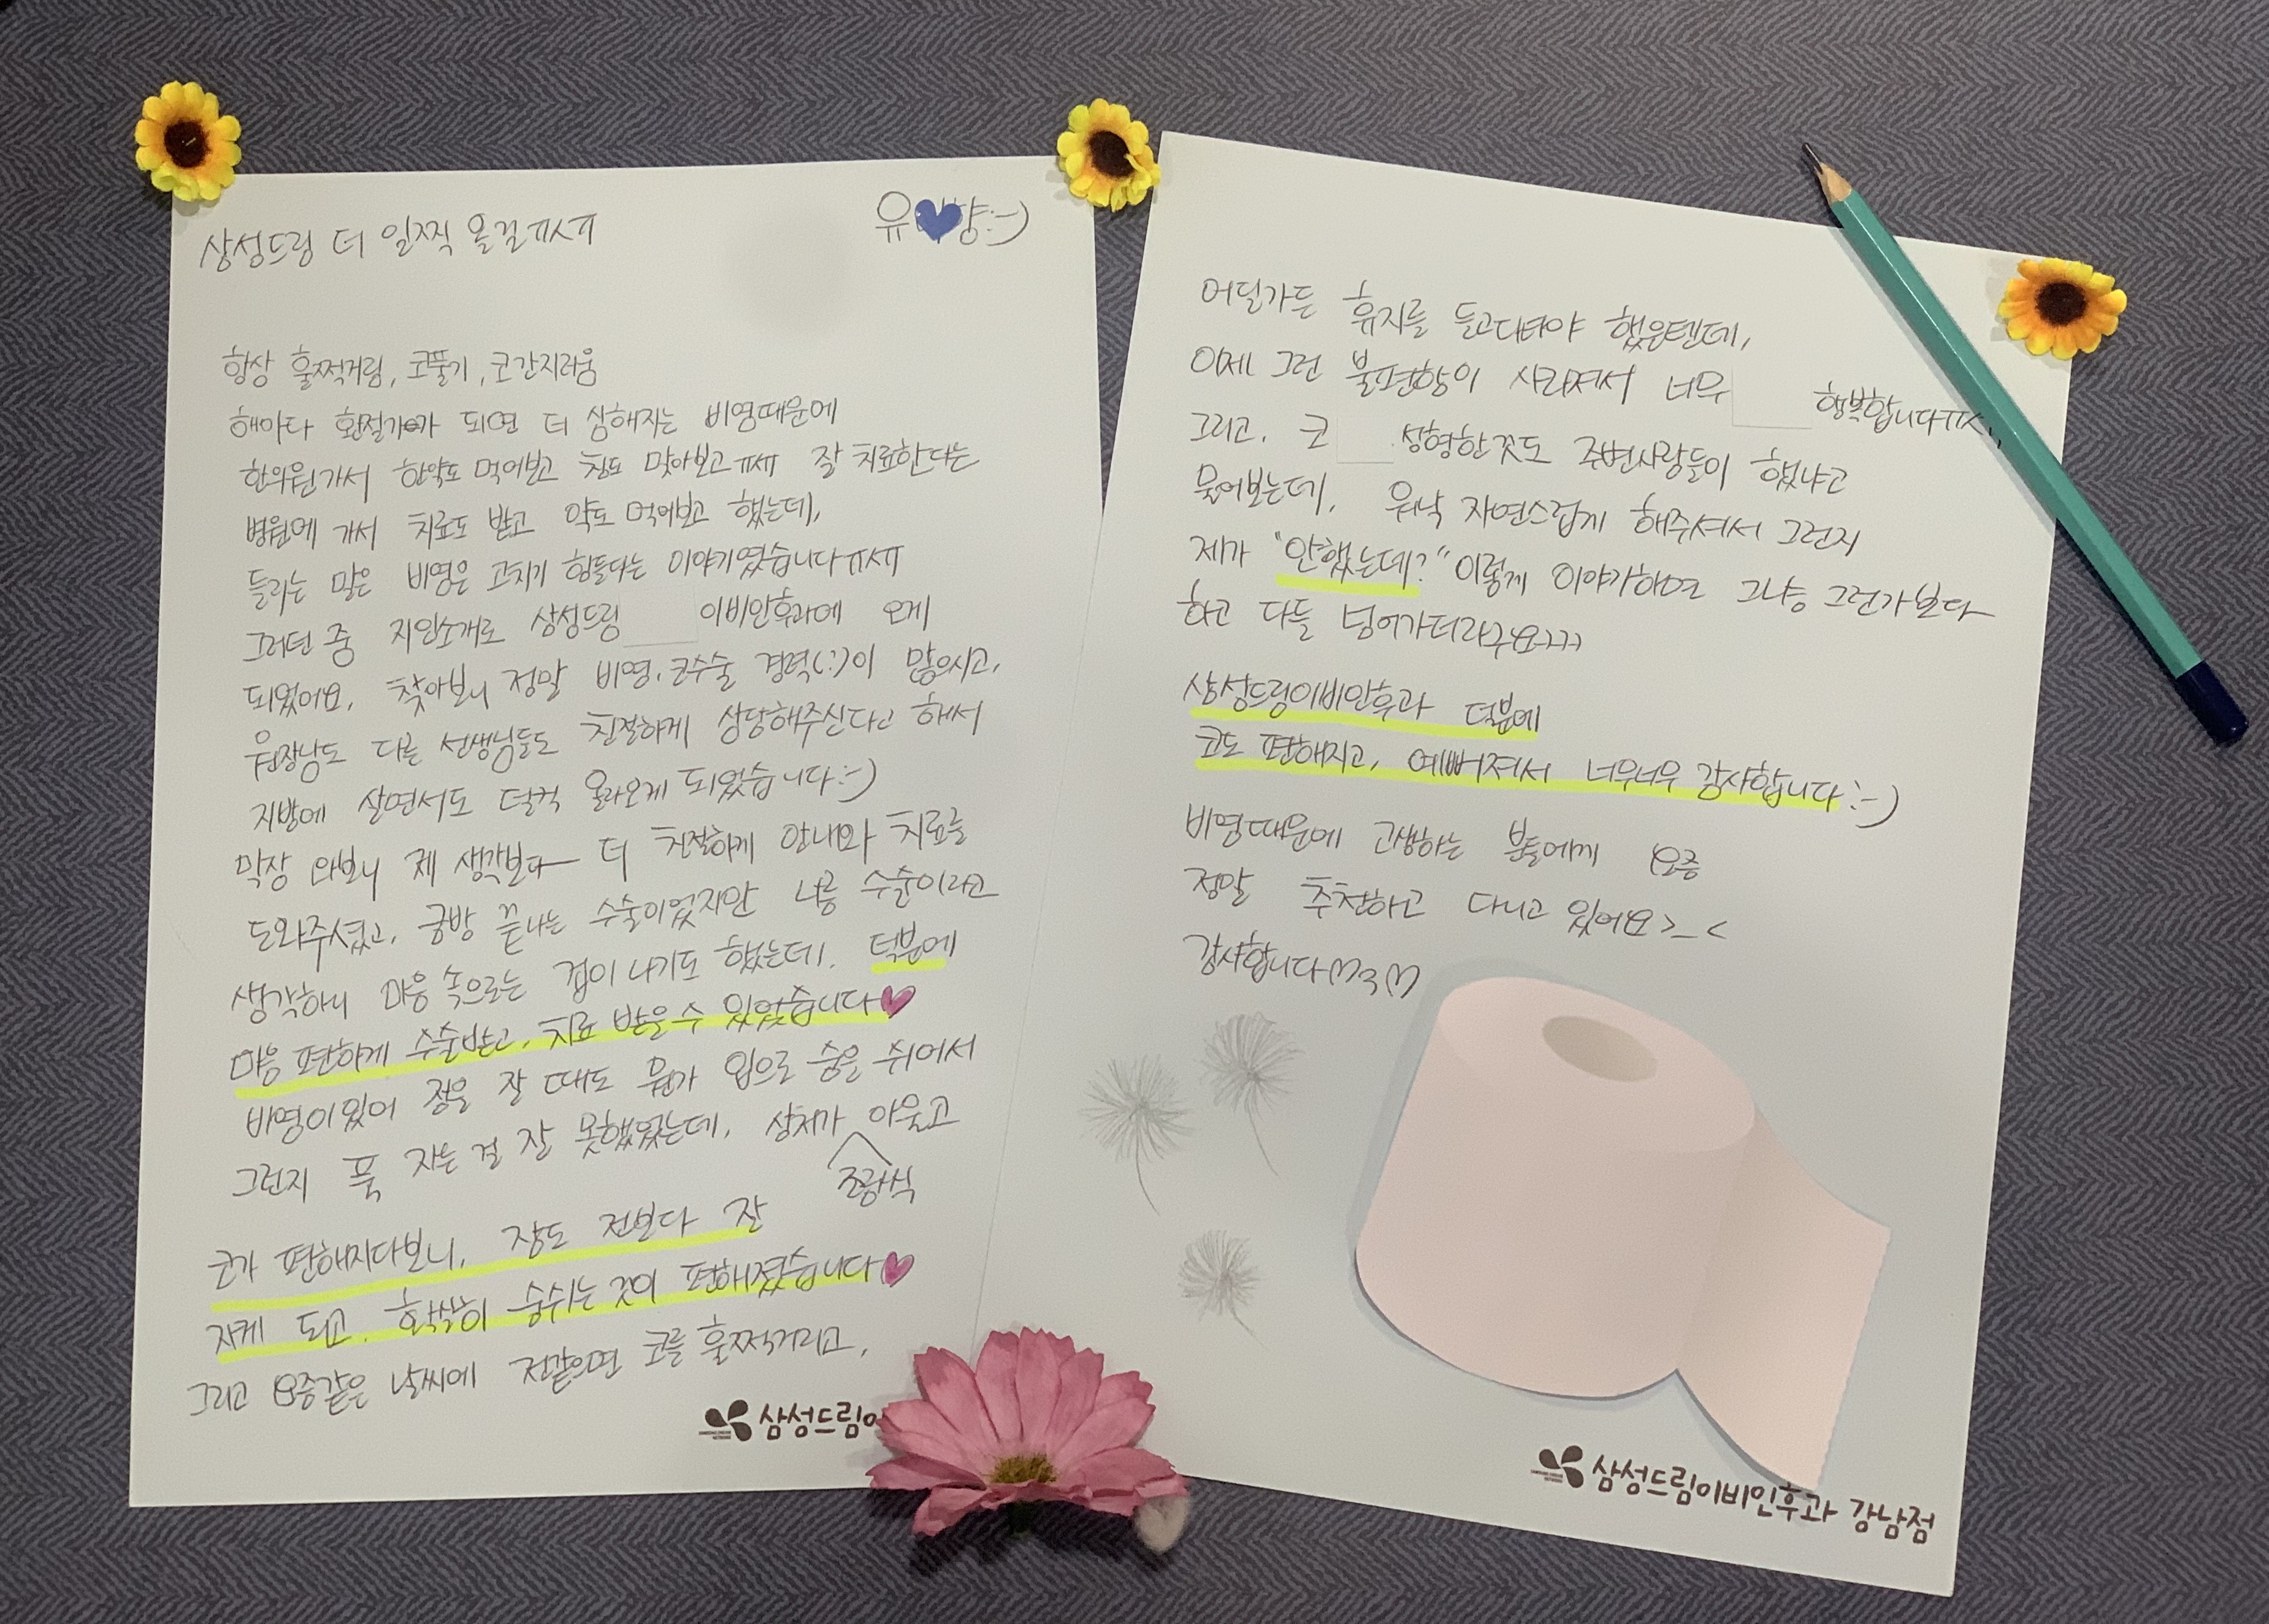 삼성드림 더 일찍 올걸ㅠㅅㅠ
유 향:-)
항상 훌쩍거림, 코풀기, 코간지러움
해마다 환절기가 되면 더 심해지는 비염때문에
한의원가서 한약도 먹어보고 침도 맞아보고ㅠㅠ 잘 치료한다는
병원에 가서 치료도 받고 약도 먹어보고 했는데,
들리는 말은 비염은 고치기 힘들다는 이야기였습니다ㅠㅅㅠ
그러던 중 지인소개로 삼성드림 이비인후과에 오게
되었어요. 찾아보니 정말 비염.코수술 경력(:)이 많으시고,
원장님도 다른 선생님들도 친절하게 상담해주신다고 해서
지방에 살면서도 덜컥 올라오게 되었습니다:-)
막상 와보니 제 생각보다 더 친절하게 안내와 치료를
도와주셨고, 금방 끝나는 수술이었지만 나름 수술이라고
생각하니 마음 속으로는 겁이 나기도 했는데. 덕분에
마음 편하게 수술받고, 치료 받을 수 있었습니다♥
비염이 있어 잠을 잘 때도 뭔가 입으로 숨을 쉬어서
그런지 푹 자는 걸 잘 못했었는데, 상처가 아물고
조금씩
코가 편해지다보니, 잠도 전보다 잘
자게 되고. 확실히 숨쉬는 것이 편해졌습니다♥
그리고 요즘같은 날씨에 전같으면 코를 훌쩍거리고,
삼성드림이
어딜가든 휴지를 들고다녀야 했을텐데,
이제 그런 불편함이 사라져서 너무 행복합니다ㅠㅅ
그리고, 코 성형한 것도 주변사람들이 했냐고
물어보는데, 워낙 자연스럽게 해주셔서 그런지
제가 "안했는데?" 이렇게 이야기하면 그냥 그런가보다
하고 다들 넘어가더라구요ㅋㅋㅋ
삼성드림이비인후과 덕분에
코도 편해지고, 예뻐져서 너무너무 감사합니다:-)
비염때문에 고생하는 분들에게 요즘
정말 추천하고 다니고 있어요>_<
감사합니다♡3♡
삼성드림이비인후과 강남점